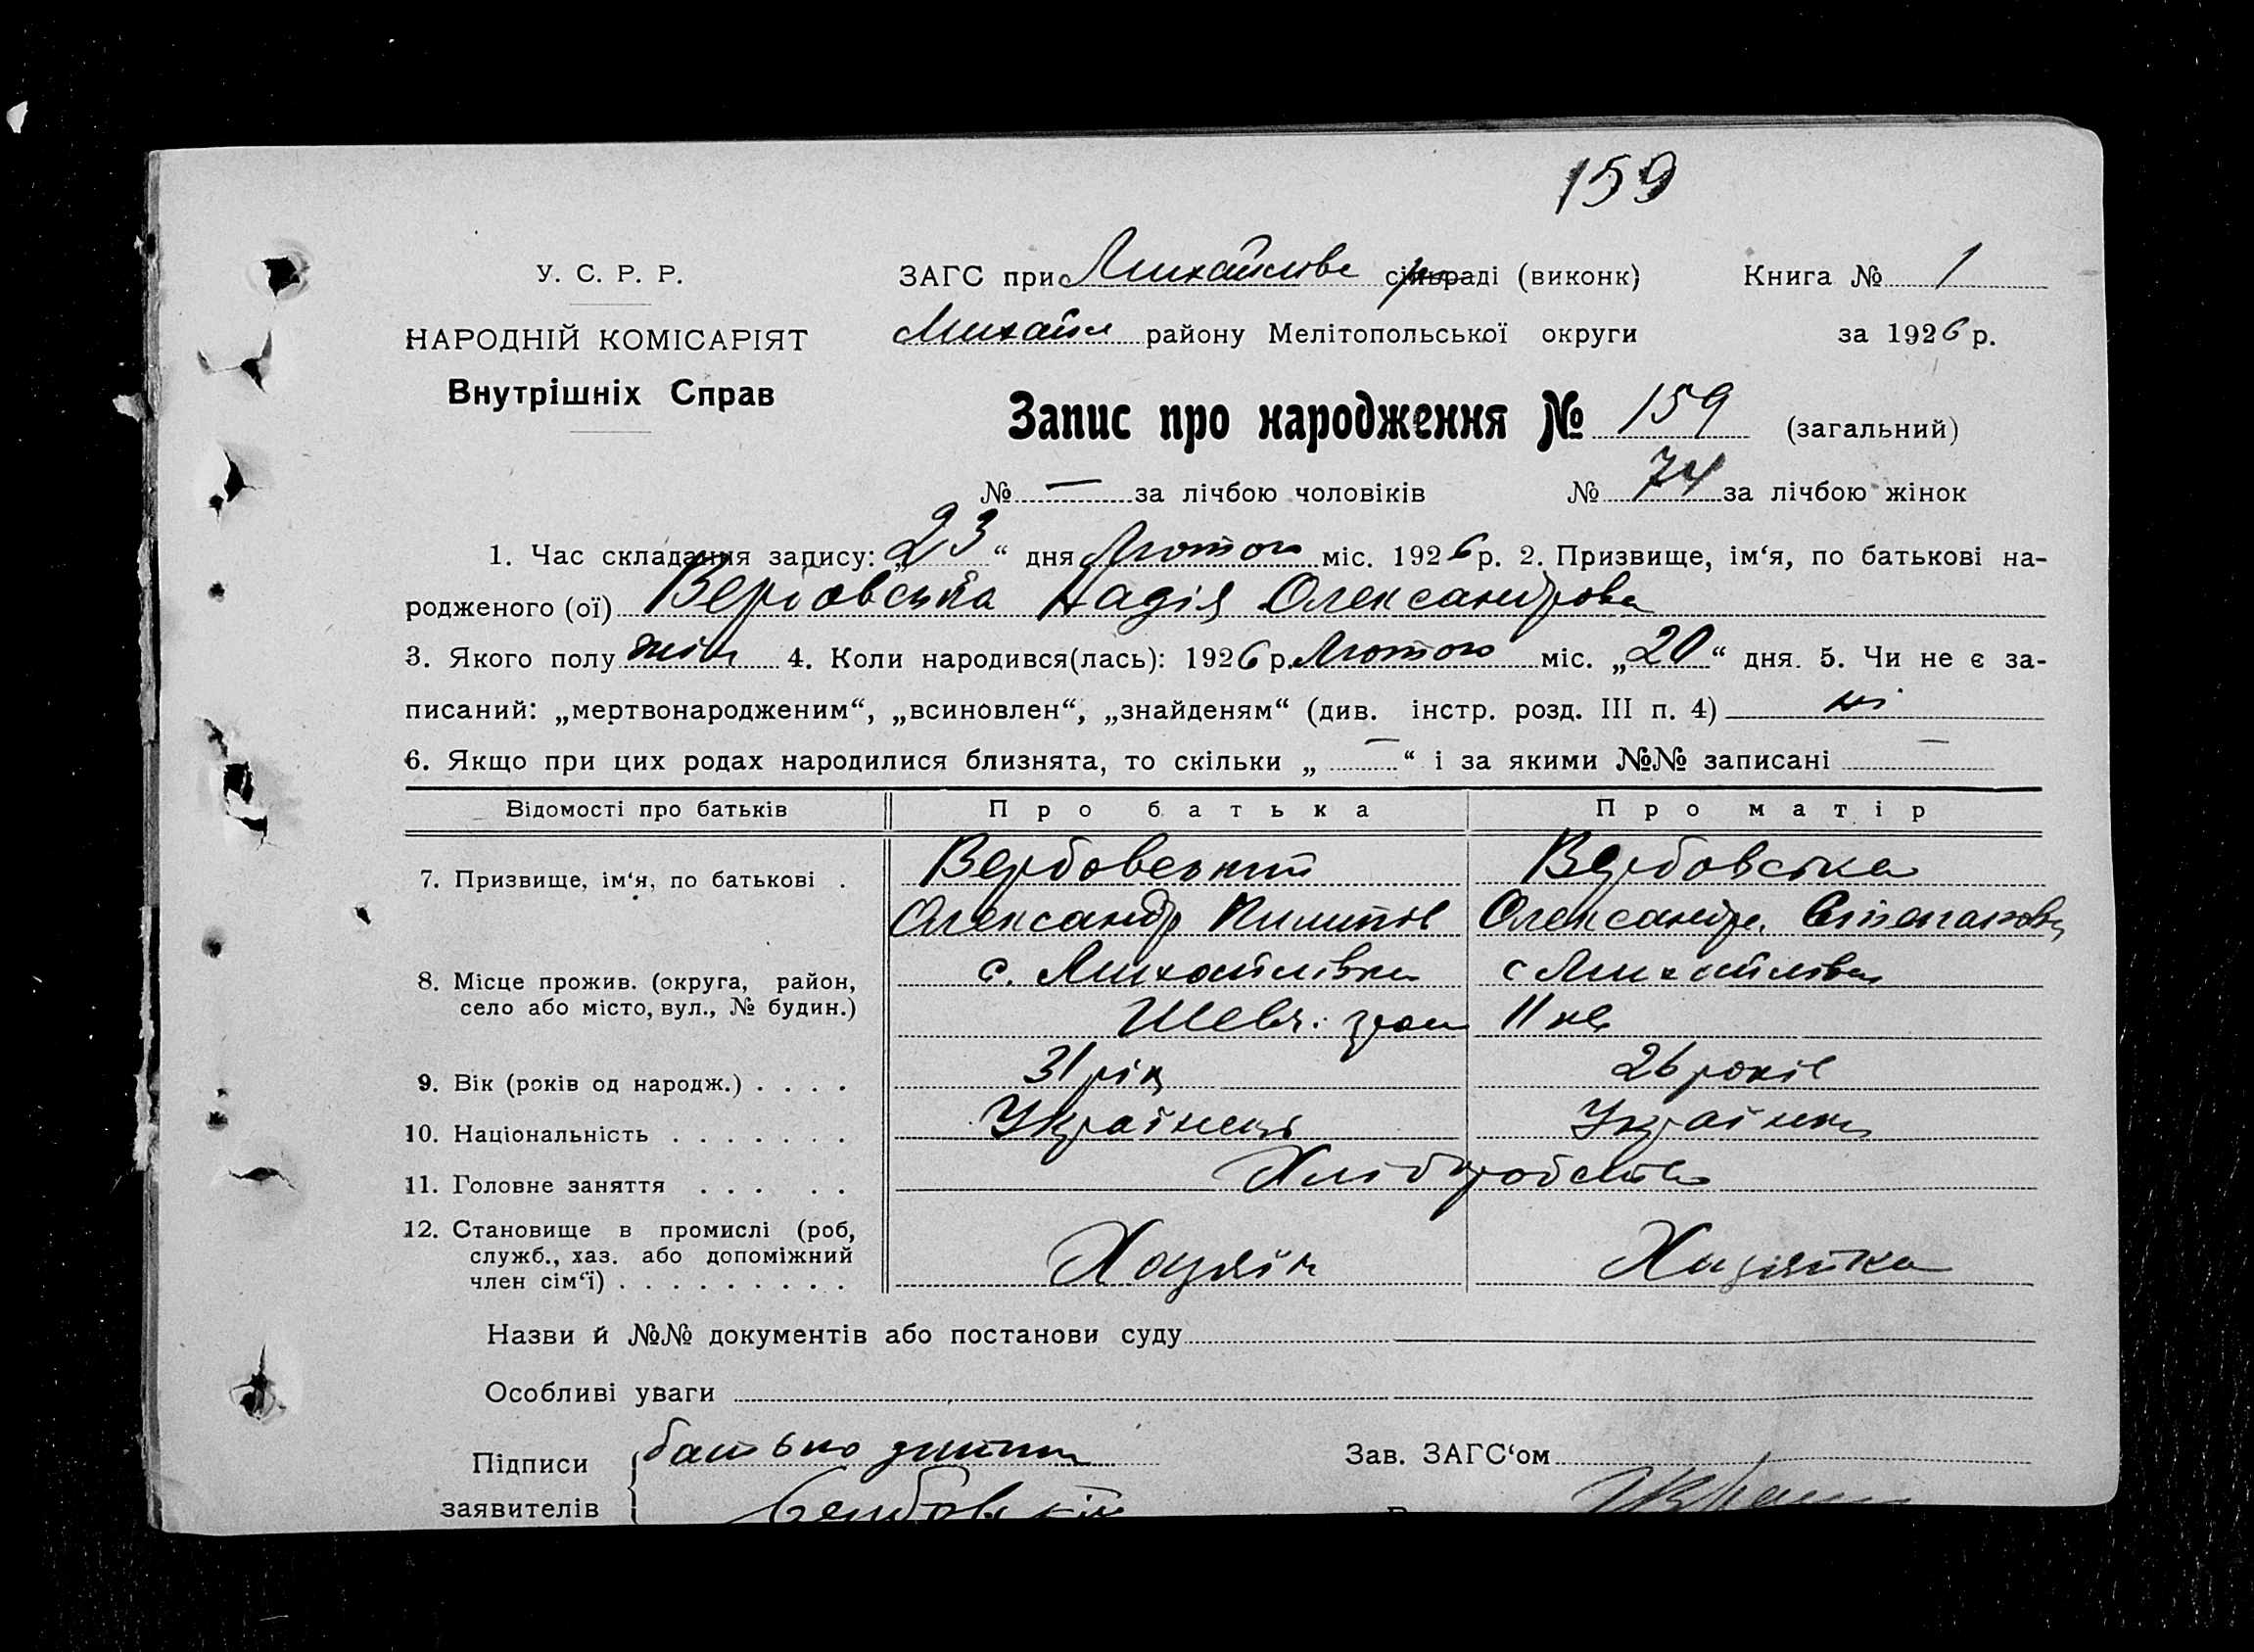 159
У. С. Р. Р.
ЗАГС при Михайлове сільраді (виконк) Книга № 1
НАРОДНІЙ КОМІСАРІЯТ
Михайл району Мелітопольської округи за 1926 р.
Внутрішніх Справ
Запис про народження № 159 (загальний)
№ — за лічбою чоловіків № 74 за лічбою жінок
1. Час складання запису: „23“ дня Лютого міс. 1926 р. 2. Призвище, ім'я, по батькові на-
родженого (ої) Вербовська Надія Олександрова
3. Якого полу жін 4. Коли народився(лась): 1926 р. Лютого міс. „20“ дня. 5. Чи не є за-
писаний: „мертвонародженим“, „всиновлен“, „знайденям“ (див. інстр. розд. III п. 4) ні
6. Якщо при цих родах народилися близнята, то скільки „ — “ і за якими №№ записані —
Відомості про батьків Про батька Про матір
7. Призвище, ім‘я, по батькові . Вербовський Вербовська
Олександр Пилипів Олександра Степанова
8. Місце прожив. (округа, район, с. Михайлівка с Михайлівка
село або місто, вул., № будин.) Шевч. гром 11 кв
9. Вік (років од народж.) . . . . 31 рік 26 років
10. Національність . . . . . . . Українець Українка
11. Головне заняття . . . . . Хліборобство
12. Становище в промислі (роб,
служб., хаз. або допоміжний Хазяїн Хазяйка
член сім‘ї) . . . . . . . . .
Назви й №№ документів або постанови суду
Особливі уваги
Підписи батько дитини Зав. ЗАГС‘ом
заявителів Вербовський